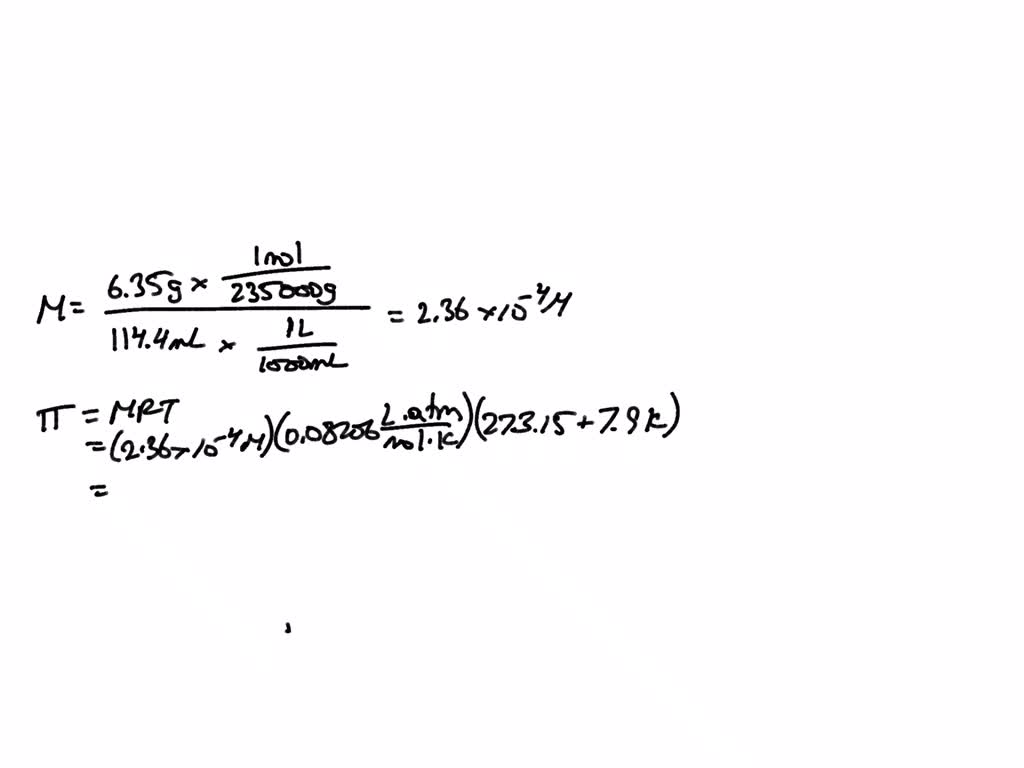 M = (6.35g × (1mol / 235000g)) / (114.4mL × (1L / 1000mL)) = 2.36 × 10⁻⁴ M
π = MRT
= (2.36 × 10⁻⁴ M)(0.08206 L·atm / mol·K)(273.15 + 7.9 K)
=